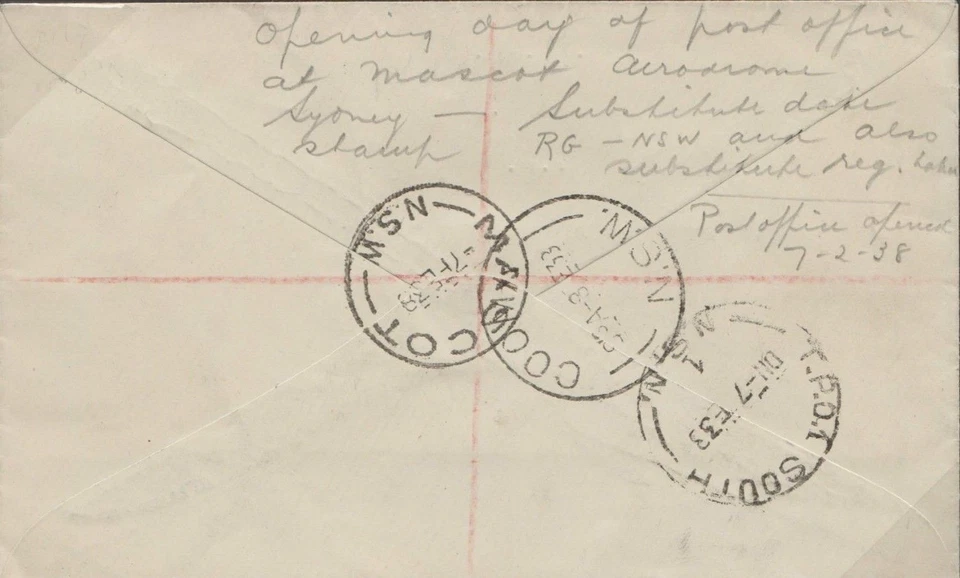 Opening day of post office
at Mascot Aerodrome
Sydney — Substitute date
stamp RG - NSW and also
substitute reg.
Post office opened
7-2-38
MASCOT N.S.W
N.S.W.
T.P.O.1 SOUTH
N.S.W
1